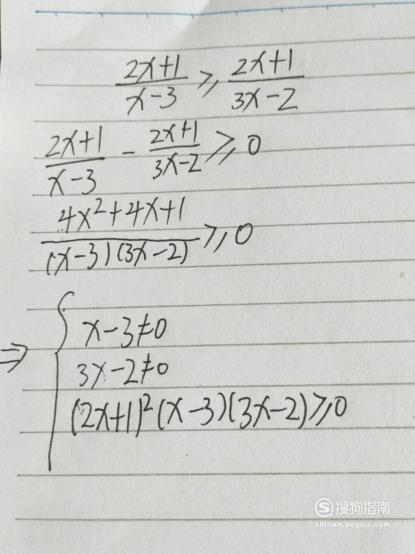 (2x+1)/(x-3) ≥ (2x+1)/(3x-2)
(2x+1)/(x-3) - (2x+1)/(3x-2) ≥ 0
(4x²+4x+1)/((x-3)(3x-2)) ≥ 0
⇒ { x-3≠0
3x-2≠0
(2x+1)²(x-3)(3x-2)≥0
S 搜狗指南
zhinan.sogou.com